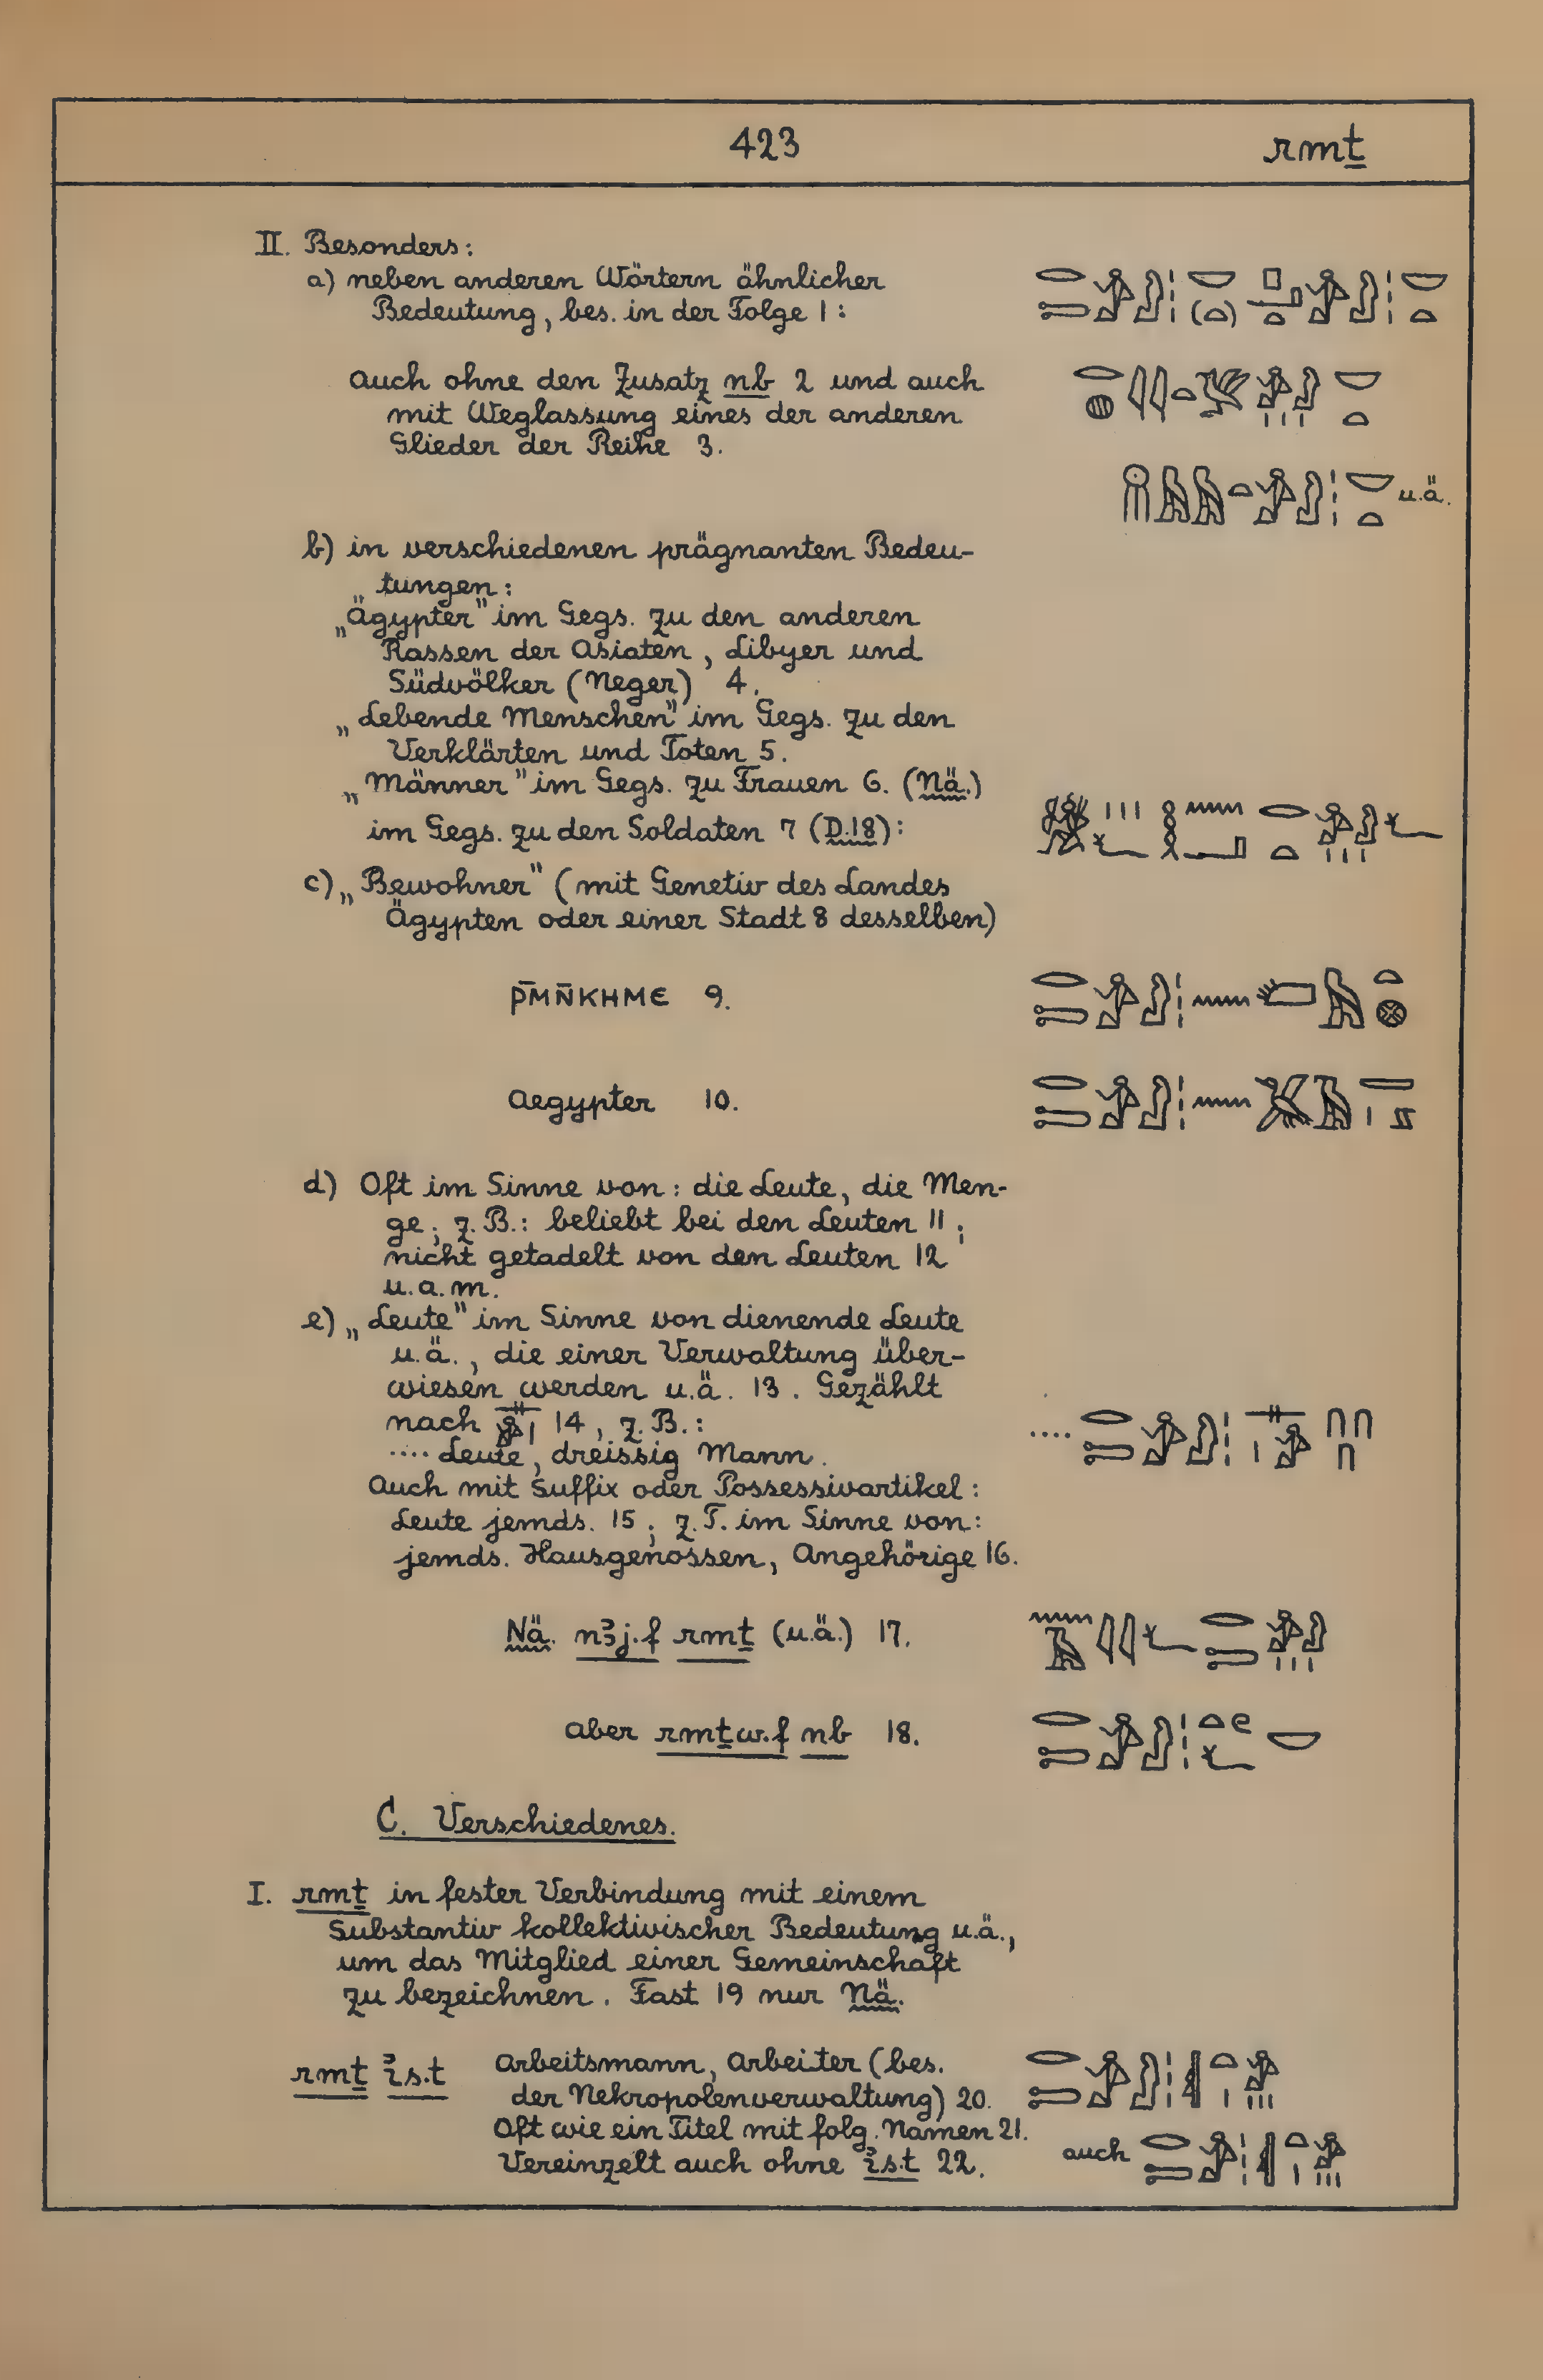 423 rmṯ
II. Besonders:
a) neben anderen Wörtern ähnlicher
Bedeutung, bes. in der Folge 1:
auch ohne den Zusatz nb 2 und auch
mit Weglassung eines der anderen
Glieder der Reihe 3.
u.ä.
b) in verschiedenen prägnanten Bedeu-
tungen:
„Ägypter" im Gegs. zu den anderen
Rassen der Asiaten, Libyer und
Südvölker (Neger) 4.
„Lebende Menschen" im Gegs. zu den
Verklärten und Toten 5.
„Männer" im Gegs. zu Frauen 6. (Nä.)
im Gegs. zu den Soldaten 7 (D.18):
c) „Bewohner" (mit Genetiv des Landes
Ägypten oder einer Stadt 8 desselben)
ⲣ̄ⲙⲛ̄ⲕⲏⲙⲉ 9.
Aegypter 10.
d) Oft im Sinne von: die Leute, die Men-
ge; z.B.: beliebt bei den Leuten 11;
nicht getadelt von den Leuten 12
u.a.m.
e) „Leute" im Sinne von dienende Leute
u.ä., die einer Verwaltung über-
wiesen werden u.ä. 13. Gezählt
nach 14, z.B.:
.... Leute, dreissig Mann. ....
Auch mit Suffix oder Possessivartikel:
Leute jemds. 15; z.T. im Sinne von:
jemds. Hausgenossen, Angehörige 16.
Nä. nꜣj.f rmṯ (u.ä.) 17.
aber rmṯw.f nb 18.
C. Verschiedenes.
I. rmṯ in fester Verbindung mit einem
Substantiv kollektivischer Bedeutung u.ä.,
um das Mitglied einer Gemeinschaft
zu bezeichnen. Fast 19 nur Nä.
rmṯ ỉs.t Arbeitsmann, Arbeiter (bes.
der Nekropolenverwaltung) 20.
Oft wie ein Titel mit folg. Namen 21.
Vereinzelt auch ohne ỉs.t 22. auch